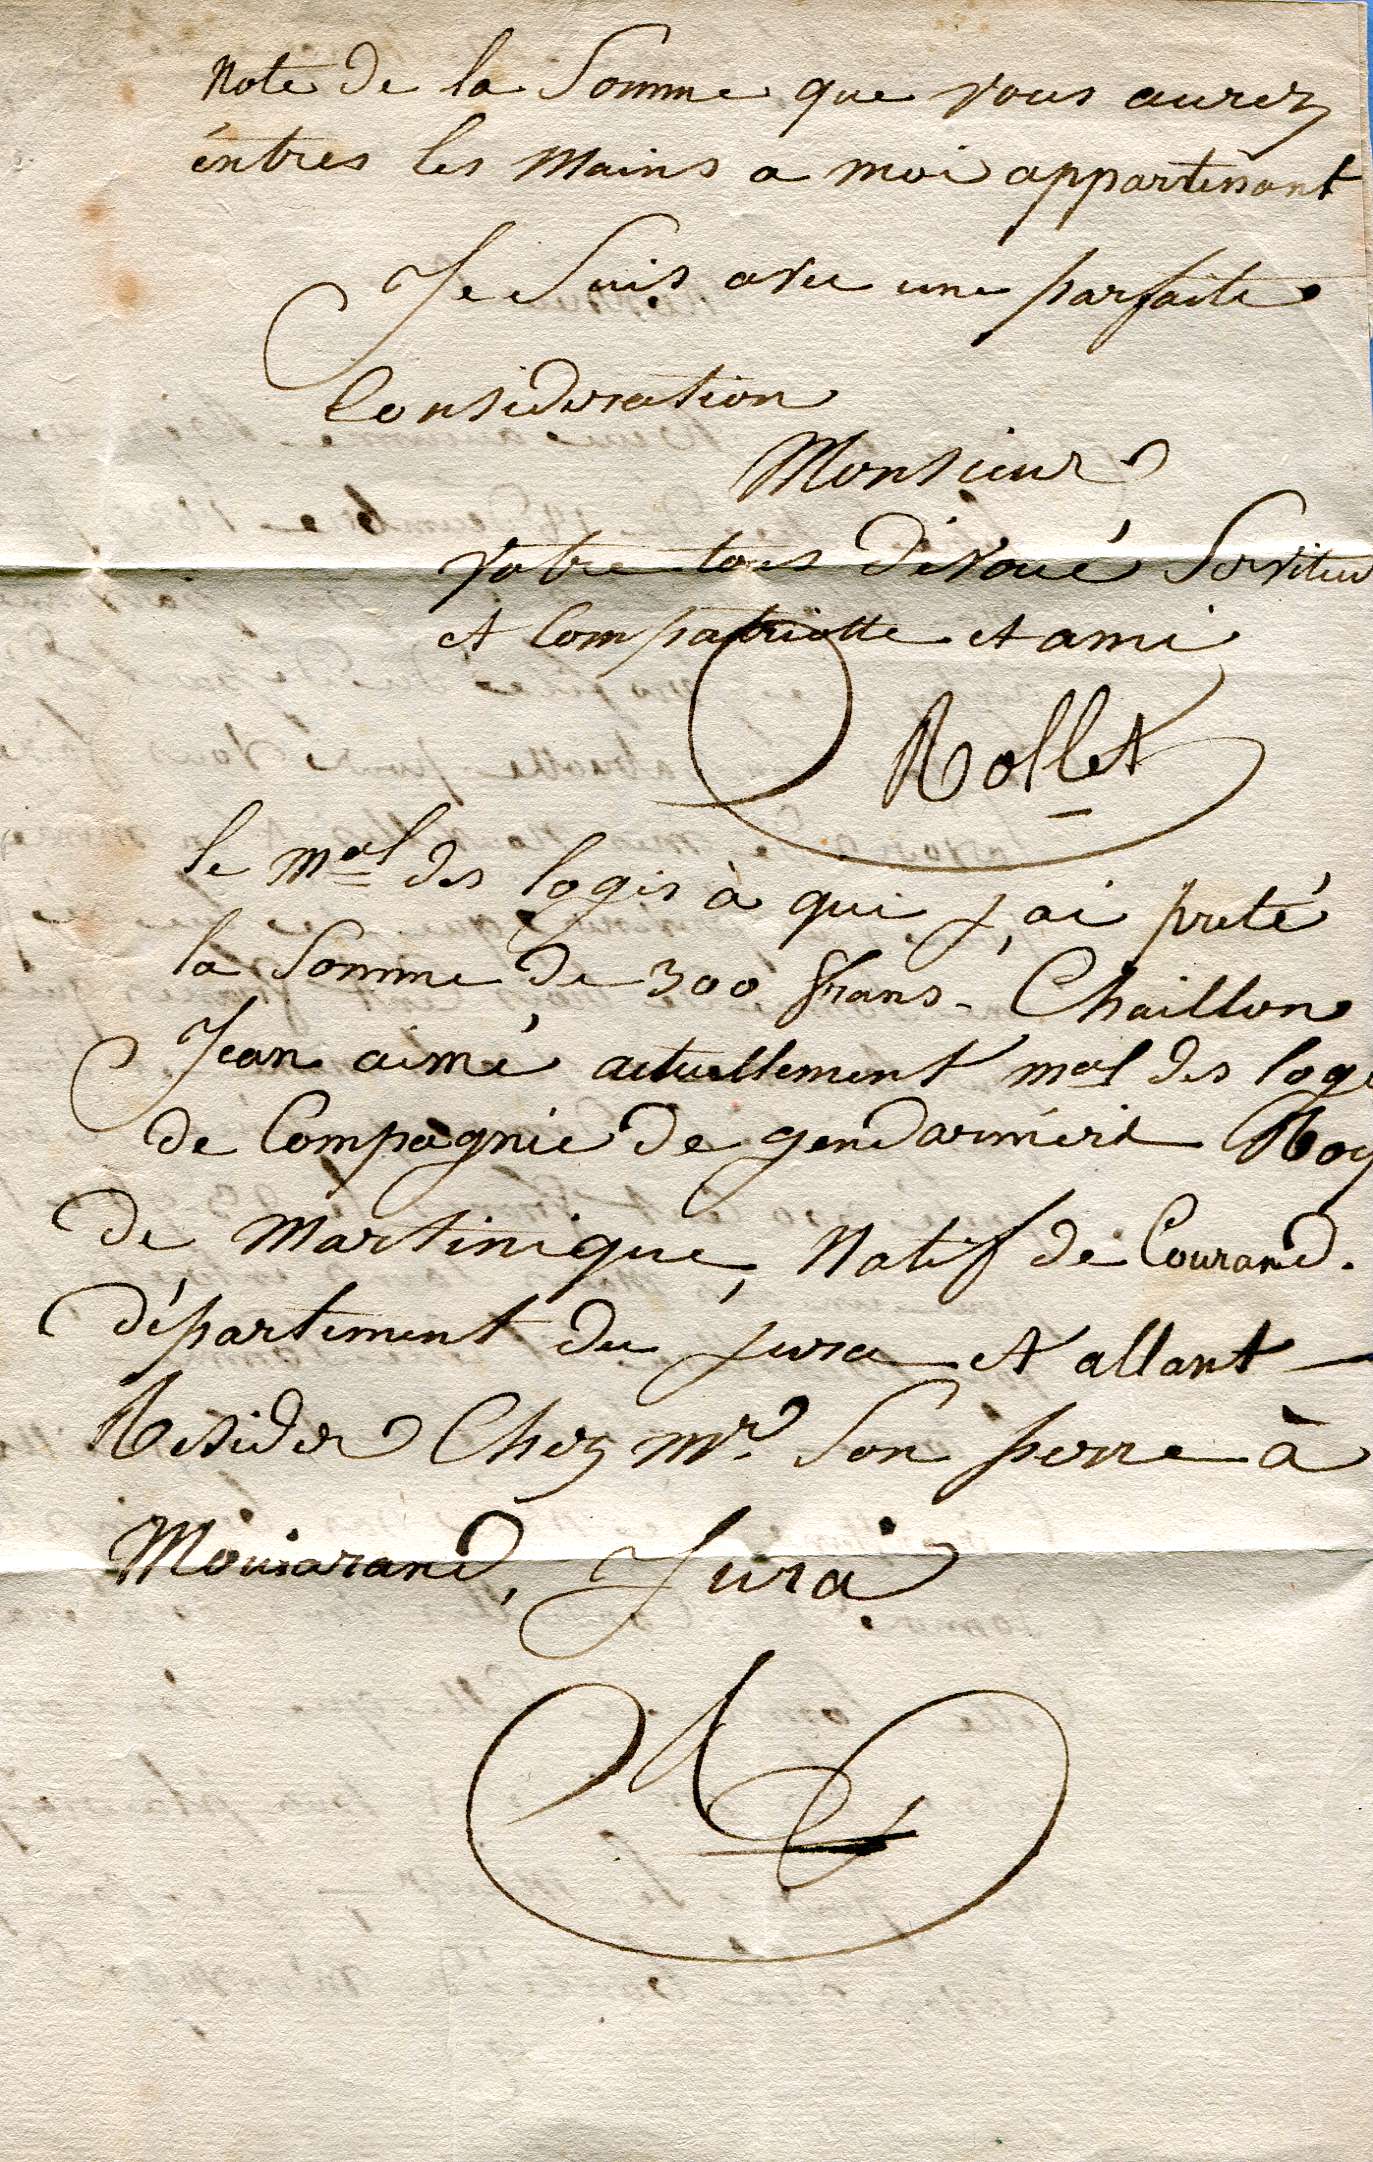 Note de la Somme que vous aurez
entres les Mains a moi appartenant
Je Suis avec une parfaite
Consideration
Monsieur
Votre tous dévoué Serviteur
et Compatriotte et ami
Rollet
le mal des logis à qui j'ai preté
la Somme de 300 frans - Chaillon
Jean aimé actuellement mal des logi
de Compagnie de gendarmérie Roy
de Martinique, Natif de Courand.
département du jura et allant
Resider Chez mr. Son perre à
Mouiarand, Jura